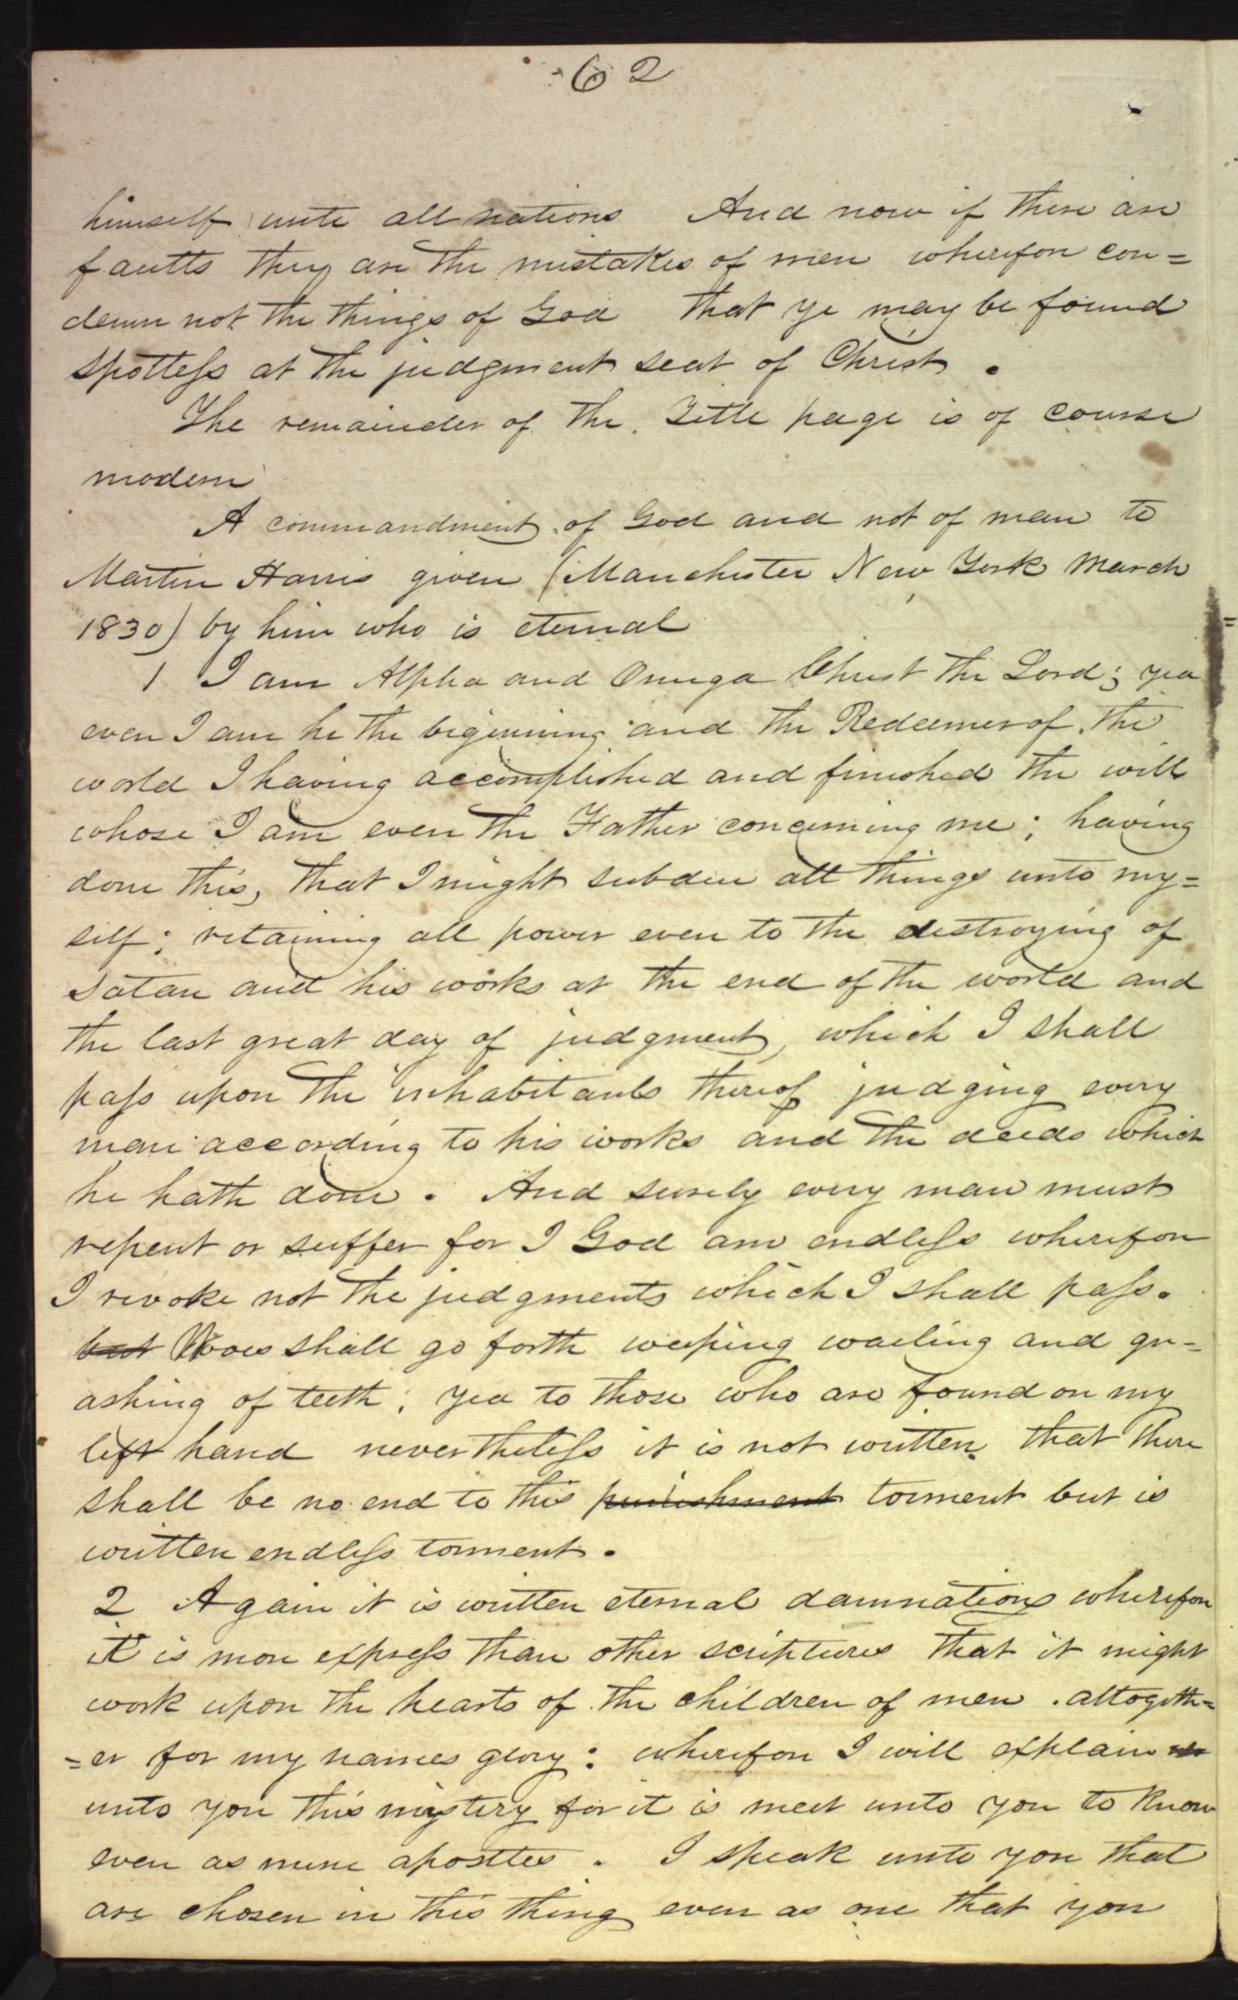 62
himself unto all nations And now if there are
faults they are the mistakes of men wherefore con=
demn not the things of God that ye may be found
spotless at the judgment seat of Christ.
The remainder of the Title page is of course
modern
A commandment of God and not of man to
Martin Harris given (Manchester New York March
1830) by him who is eternal
1 I am Alpha and Omega Christ the Lord; yea
even I am he the begining and the Redeemer of the
world I having accomplished and finished the will
whose I am even the Father concerning me; having
done this, that I might subdue all things unto my=
self; retaining all power even to the destroying of
Satan and his works at the end of the world and
the last great day of judgment, which I shall
pass upon the inhabitants thereof judging every
man according to his works and the deeds which
he hath done. And surely every man must
repent or suffer for I God am endless wherefore
I revoke not the judgments which I shall pass.
but Woes shall go forth weeping wailing and gn=
ashing of teeth; yea to those who are found on my
left hand nevertheless it is not written that there
shall be no end to this punishment torment but is
written endless torment.
2 Again it is written eternal damnation wherefore
it is more express than other scriptures that it might
work upon the hearts of the children of men. altogeth=
=er for my names glory: wherefore I will explain
unto you this mystery for it is meet unto you to know
even as mine apostles. I speak unto you that
are chosen in this thing even as one that you